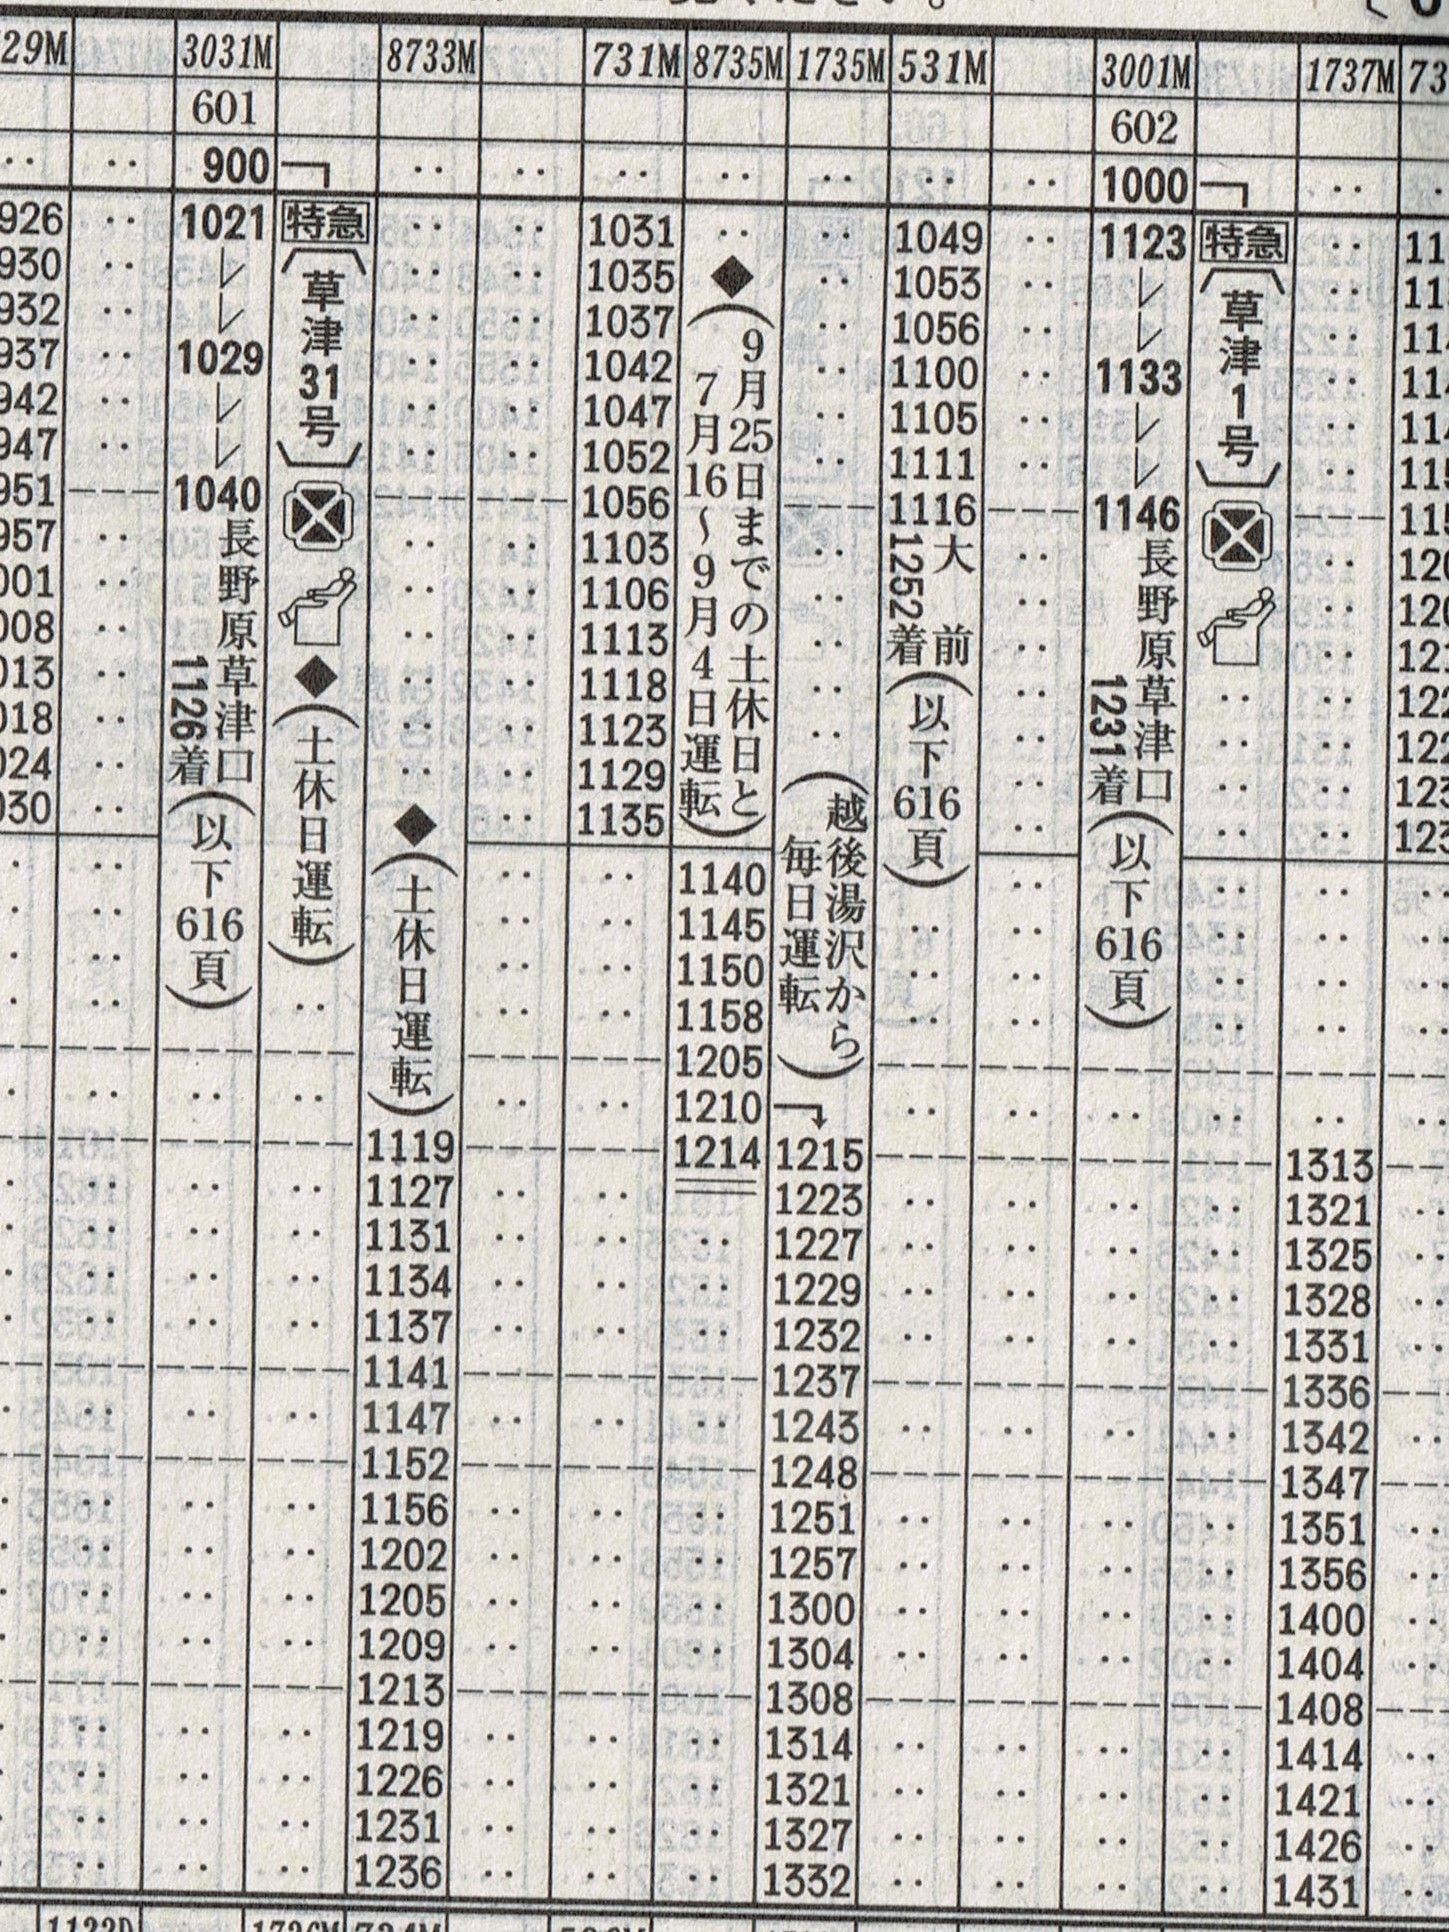 29M 3031M 8733M 731M 8735M 1735M 531M 3001M 1737M 73
601 602
900 1000
926 1021 特急 1031 1049 1123 特急 11
930 レ 1035 ◆ 1053 レ 11
932 レ 1037 1056 レ 11
937 1029 1042 1100 1133 11
942 レ 1047 1105 レ 11
947 レ 1052 1111 レ 11
951 1040 1056 1116 1146 11
957 1103
001 1106
008 1113
013 1118
018 1123
024 1129
030 1135
長野原草津口
1126着
(以下616頁)
〔草津31号〕
◆(土休日運転)
◆(土休日運転)
(9月25日までの土休日と
7月16〜9月4日運転)
(越後湯沢から
毎日運転)
大前
1252着
(以下616頁)
長野原草津口
1231着
(以下616頁)
〔草津1号〕
1140
1145
1150
1158
1205
1210
1119 1214 1215 1313
1127 1223 1321
1131 1227 1325
1134 1229 1328
1137 1232 1331
1141 1237 1336
1147 1243 1342
1152 1248 1347
1156 1251 1351
1202 1257 1356
1205 1300 1400
1209 1304 1404
1213 1308 1408
1219 1314 1414
1226 1321 1421
1231 1327 1426
1236 1332 1431